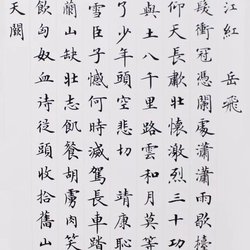 江紅 岳飛
髮衝冠憑闌處瀟瀟雨歇擡
仰天長歗壯懷激烈三十功
與土八千里路雲和月莫等
了少年頭空悲切 靖康恥
雪臣子憾何時滅駕長車踏
蘭山缺壯志飢餐胡虜肉笑
飲匈奴血待從頭收拾舊山
天闕